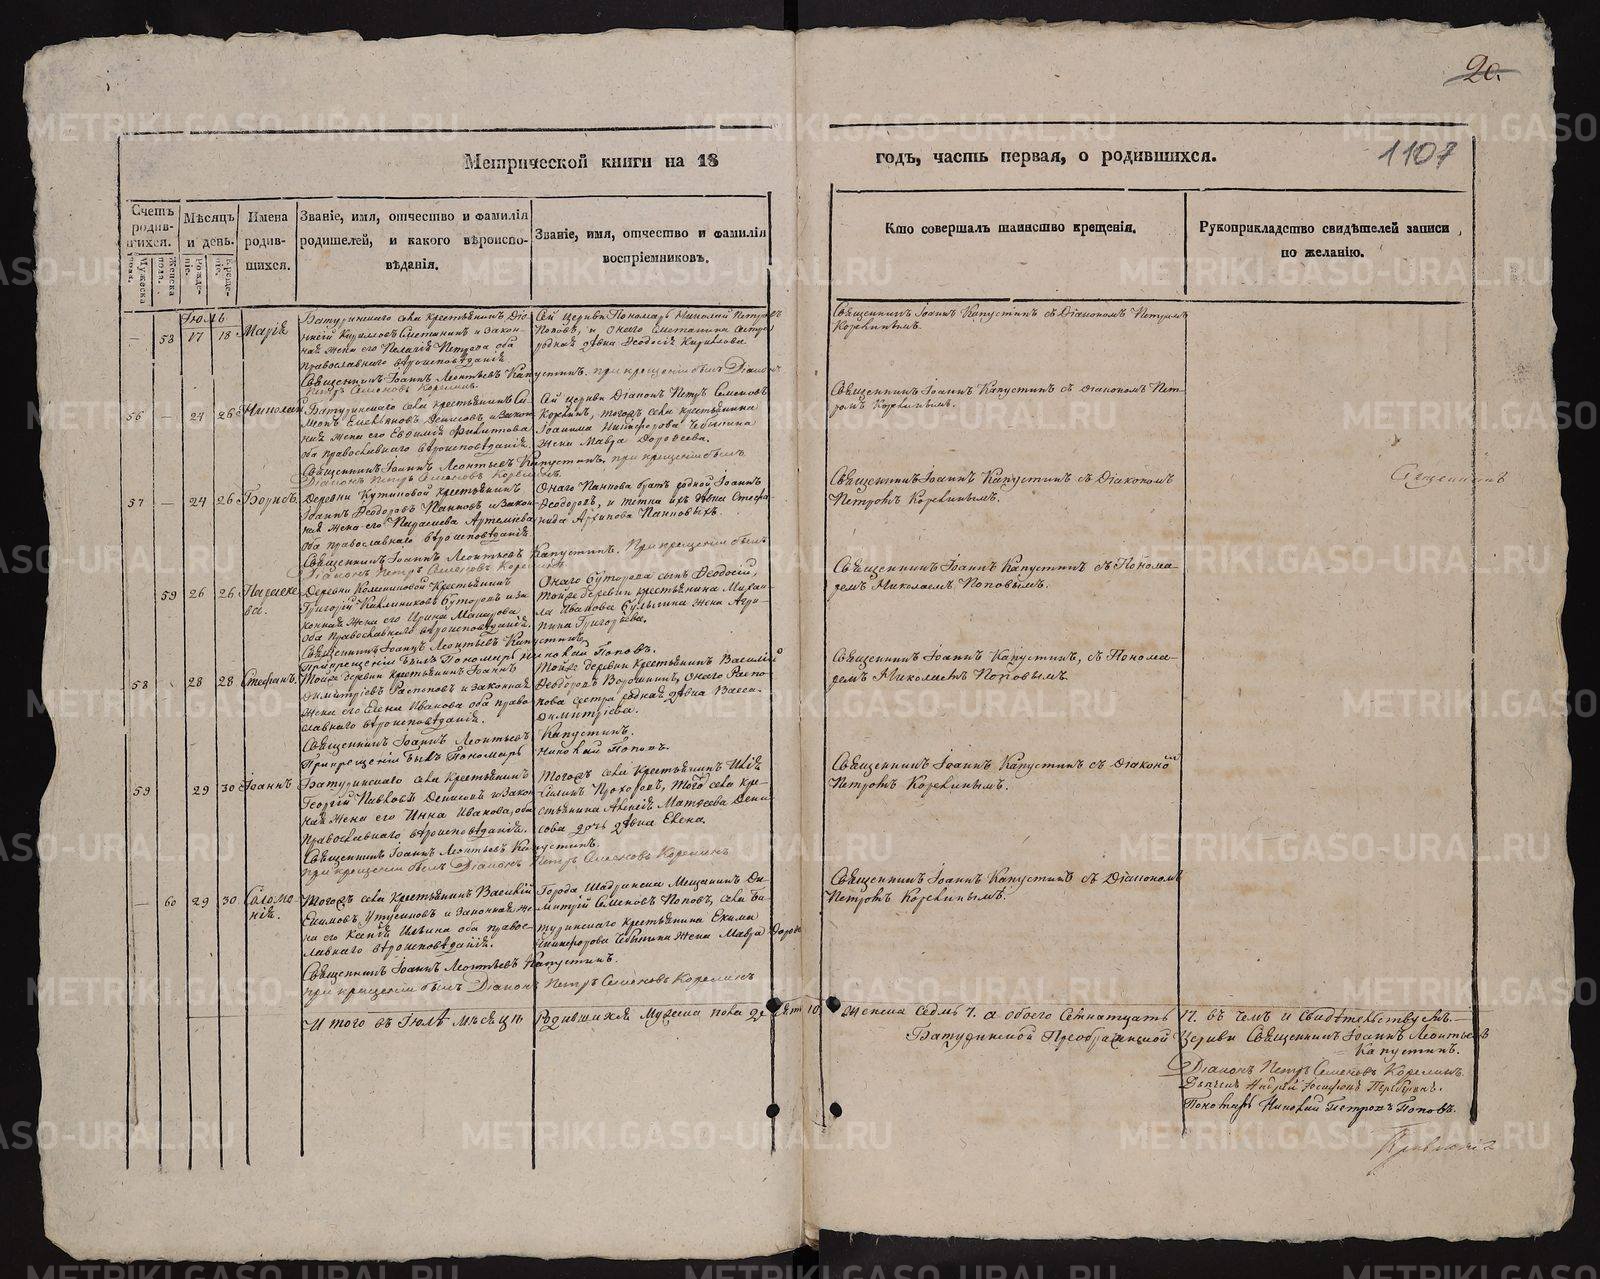 20.
1107
Метрической книги на 18
годъ, часть первая, о родившихся.
Счетъ родив-шихся.
Мужеска пола.
Женска пола.
Мѣсяцъ и день.
Рожде-нiе.
Креще-нiе.
Имена родив-шихся.
Званіе, имя, отчество и фамилія
родителей, и какого вѣроиспо-
вѣданія.
Званіе, имя, отчество и фамилія
воспріемниковъ.
Кто совершалъ таинство крещенія.
Рукоприкладство свидѣтелей записи
по желанію.
Іюль
— 58 17 18 Марія
Батуринскаго села крестьянинъ Діо-
нисій Кириловъ Сметанинъ и закон-
ная жена его Пелагія Петрова оба
православнаго вѣроисповѣданія.
Священникъ Іоаннъ Леонтьевъ Капустинъ. при крещеніи былъ Діаконъ
Петръ Семеновъ Корелинъ.
Сей церкви Пономарь Николай Петровъ
Поповъ, и онаго Сметанина сестра
родная дѣвка Ѳеодосія Кирилова
Священникъ Іоаннъ Капустинъ съ Діакономъ Петромъ
Корелинымъ.
56 — 24 26 Николай
Батуринскаго села крестьянинъ Си-
монъ Емельяновъ Денисовъ и закон-
ная жена его Евдокія Филитова
оба православнаго вѣроисповѣданія.
Священникъ Іоаннъ Леонтьевъ Капустинъ. при крещеніи былъ
Діаконъ Петръ Семеновъ Корелинъ.
Сей церкви Діаконъ Петръ Семеновъ
Корелинъ, тогожъ села крестьянина
Іоакима Никифорова
жена Мавра Дороѳеева.
Священникъ Іоаннъ Капустинъ съ діакономъ Пет-
ромъ Корелинымъ.
57 — 24 26 Борисъ
Деревни крестьянинъ
Іоаннъ Ѳеодоровъ Панковъ и закон-
ная жена его Параскева Артемьева
оба православнаго вѣроисповѣданія.
Священникъ Іоаннъ Леонтьевъ Капустинъ. При крещеніи былъ
Діаконъ Петръ Семеновъ Корелинъ
Онаго Панкова братъ родной Іоаннъ
Ѳеодоровъ, и тетка ихъ дѣвка Стефа-
нида Архипова Панковыхъ.
Священникъ Іоаннъ Капустинъ съ Діакономъ
Петромъ Корелинымъ.
Священникъ
59 26 26 Параске-
ва.
Деревни крестьянинъ
Григорій Каллиниковъ Буторовъ и за-
конная жена его Ирина Макарова
оба православнаго вѣроисповѣданія.
Священникъ Іоаннъ Леонтьевъ Капустинъ
При крещеніи былъ Пономарь Николай Поповъ.
Онаго Буторова сынъ Ѳеодосій,
тойже деревни крестьянина Михаи-
ла Иванова Булыгина жена Агри-
пина Григорьева.
Священникъ Іоаннъ Капустинъ съ Понома-
ремъ Николаемъ Поповымъ.
58 28 28 Стефанъ.
Тойже деревни крестьянинъ Іоаннъ
Димитріевъ Распоповъ и законная
жена его Елена Иванова оба право-
славнаго вѣроисповѣданія.
Священникъ Іоаннъ Леонтьевъ Капустинъ.
При крещеніи былъ Пономарь Николай Поповъ.
Тойже деревни крестьянинъ Василій
Ѳеодоровъ Воронинъ, онаго Распо-
пова сестра родная дѣвка Васса
Димитріева.
Священникъ Іоаннъ Капустинъ, съ Понома-
ремъ Николаемъ Поповымъ.
59 29 30 Іоаннъ
Батуринскаго села крестьянинъ
Георгій Павловъ Денисовъ и закон-
ная жена его Инна Иванова, оба
Православнаго вѣроисповѣданія.
Священникъ Іоаннъ Леонтьевъ Капустинъ.
при крещеніи былъ Діаконъ Петръ Семеновъ Корелинъ
Тогожъ села крестьянинъ Илія
Силинъ Прохоровъ, того села кре-
стьянина Алексѣя Матѳеева Дени-
сова дочь дѣвка Елена.
Священникъ Іоаннъ Капустинъ съ Діакономъ
Петромъ Корелинымъ.
— 60 29 30 Соломо-
нія.
Тогожъ села крестьянинъ Василій
Екимовъ Утусиковъ и законная же-
на его Ксенія Ильина оба правос-
лавнаго вѣроисповѣданія.
Священникъ Іоаннъ Леонтьевъ Капустинъ.
при крещеніи былъ Діаконъ Петръ Семеновъ Корелинъ
Города Шадринска Мещанинъ Ди-
митрій Семеновъ Поповъ, села Ба-
туринскаго крестьянина Екима
Никифорова жена Мавра Дороѳ
Священникъ Іоаннъ Капустинъ съ Діакономъ
Петромъ Корелинымъ.
Итого въ Іюлѣ мѣсяцѣ родившихся Мужеска пола десять 10. Женска седмь 7. а обоего семнатцать 17. въ чемъ и свидѣтельствуемъ.—
Батуринской Преображенской Церкви Священникъ Іоаннъ Леонтьевъ
Капустинъ.
Діаконъ Петръ Семеновъ Корелинъ.
Дьячекъ Андрей
Пономарь Николай Петровъ Поповъ.
METRIKI.GASO-URAL.RU